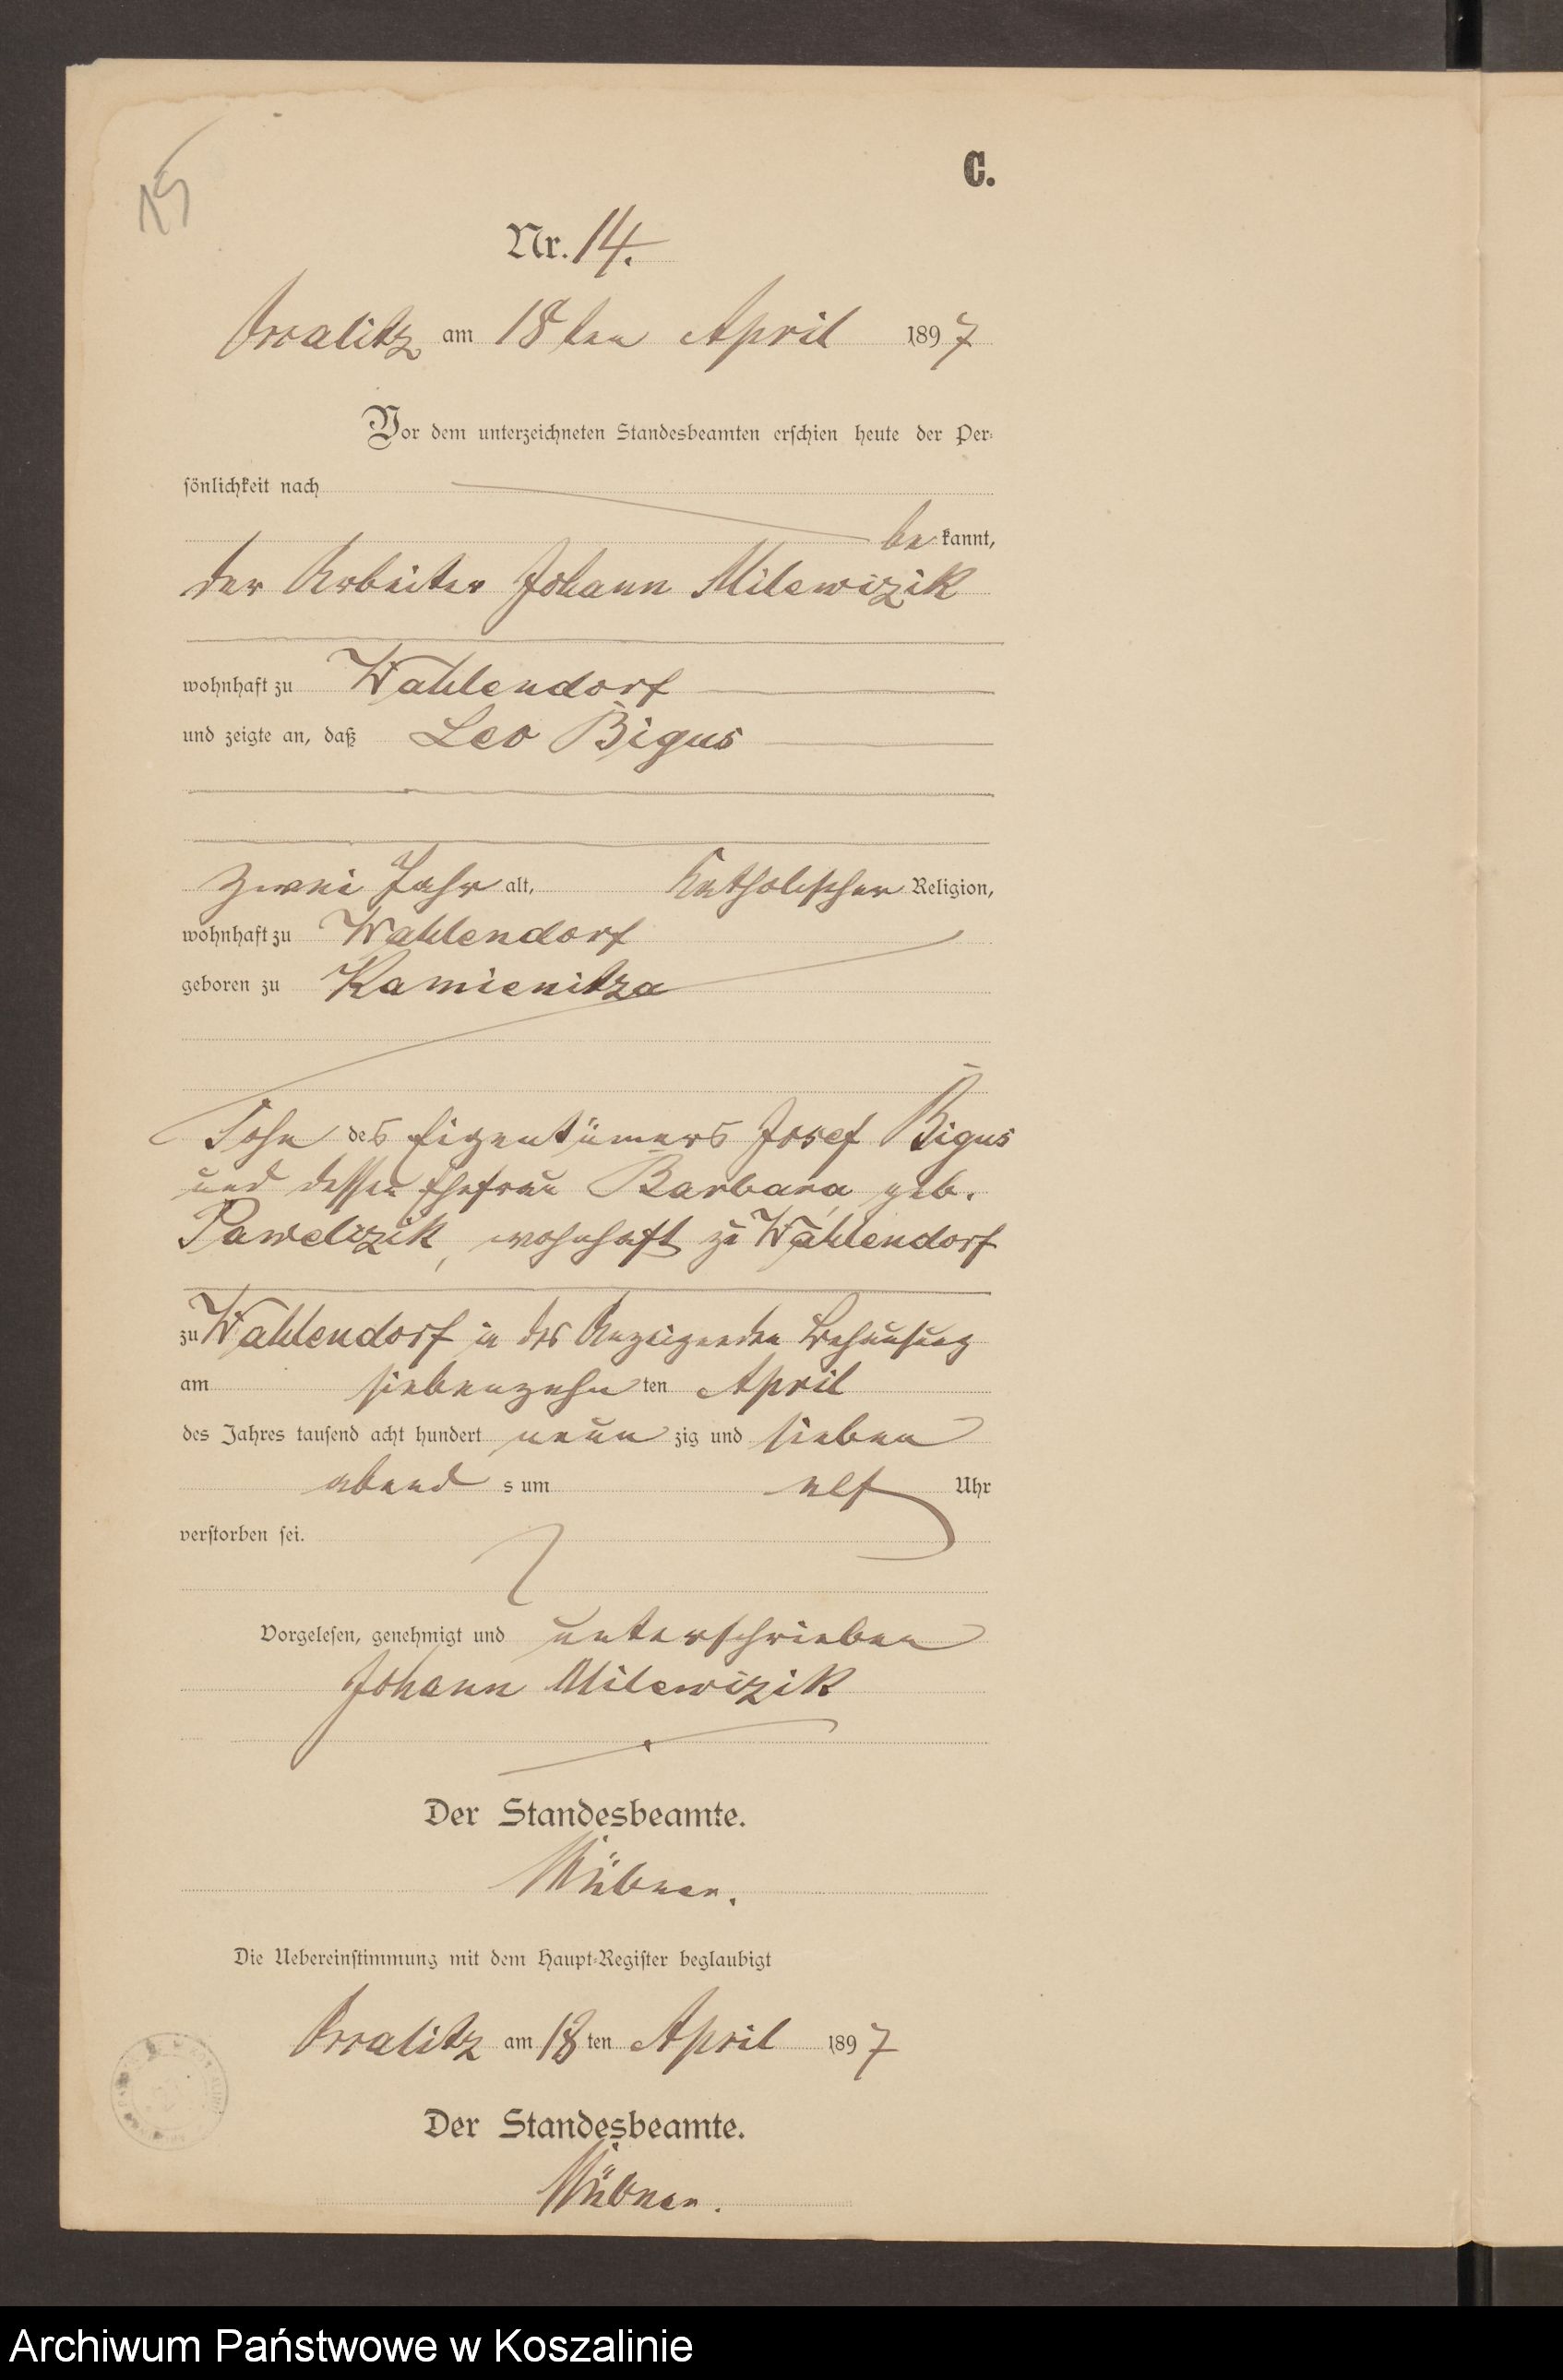 15
C.
Nr. 14.
am 18ten April 1897
Vor dem unterzeichneten Standesbeamten erschien heute der Per-
sönlichkeit nach
be kannt,
der Arbeiter Johann Milewizik
wohnhaft zu Wahlendorf
und zeigte an, daß Leo Bigus
zwei Jahr alt, Katholischer Religion,
wohnhaft zu Wahlendorf
geboren zu Kamienitza
Sohn des Eigentümers Josef Bigus
und dessen Ehefrau Barbara geb.
Pawelizik, wohnhaft zu Wahlendorf
zu Wahlendorf in des Anzeigenden Behausung
am siebenzehn ten April
des Jahres tausend acht hundert neun zig und sieben
abend s um elf Uhr
verstorben sei.
Vorgelesen, genehmigt und unterschrieben
Johann Milewizik
Der Standesbeamte.
Die Uebereinstimmung mit dem Haupt-Register beglaubigt
am 18 ten April 1897
Der Standesbeamte.
Archiwum Państwowe w Koszalinie